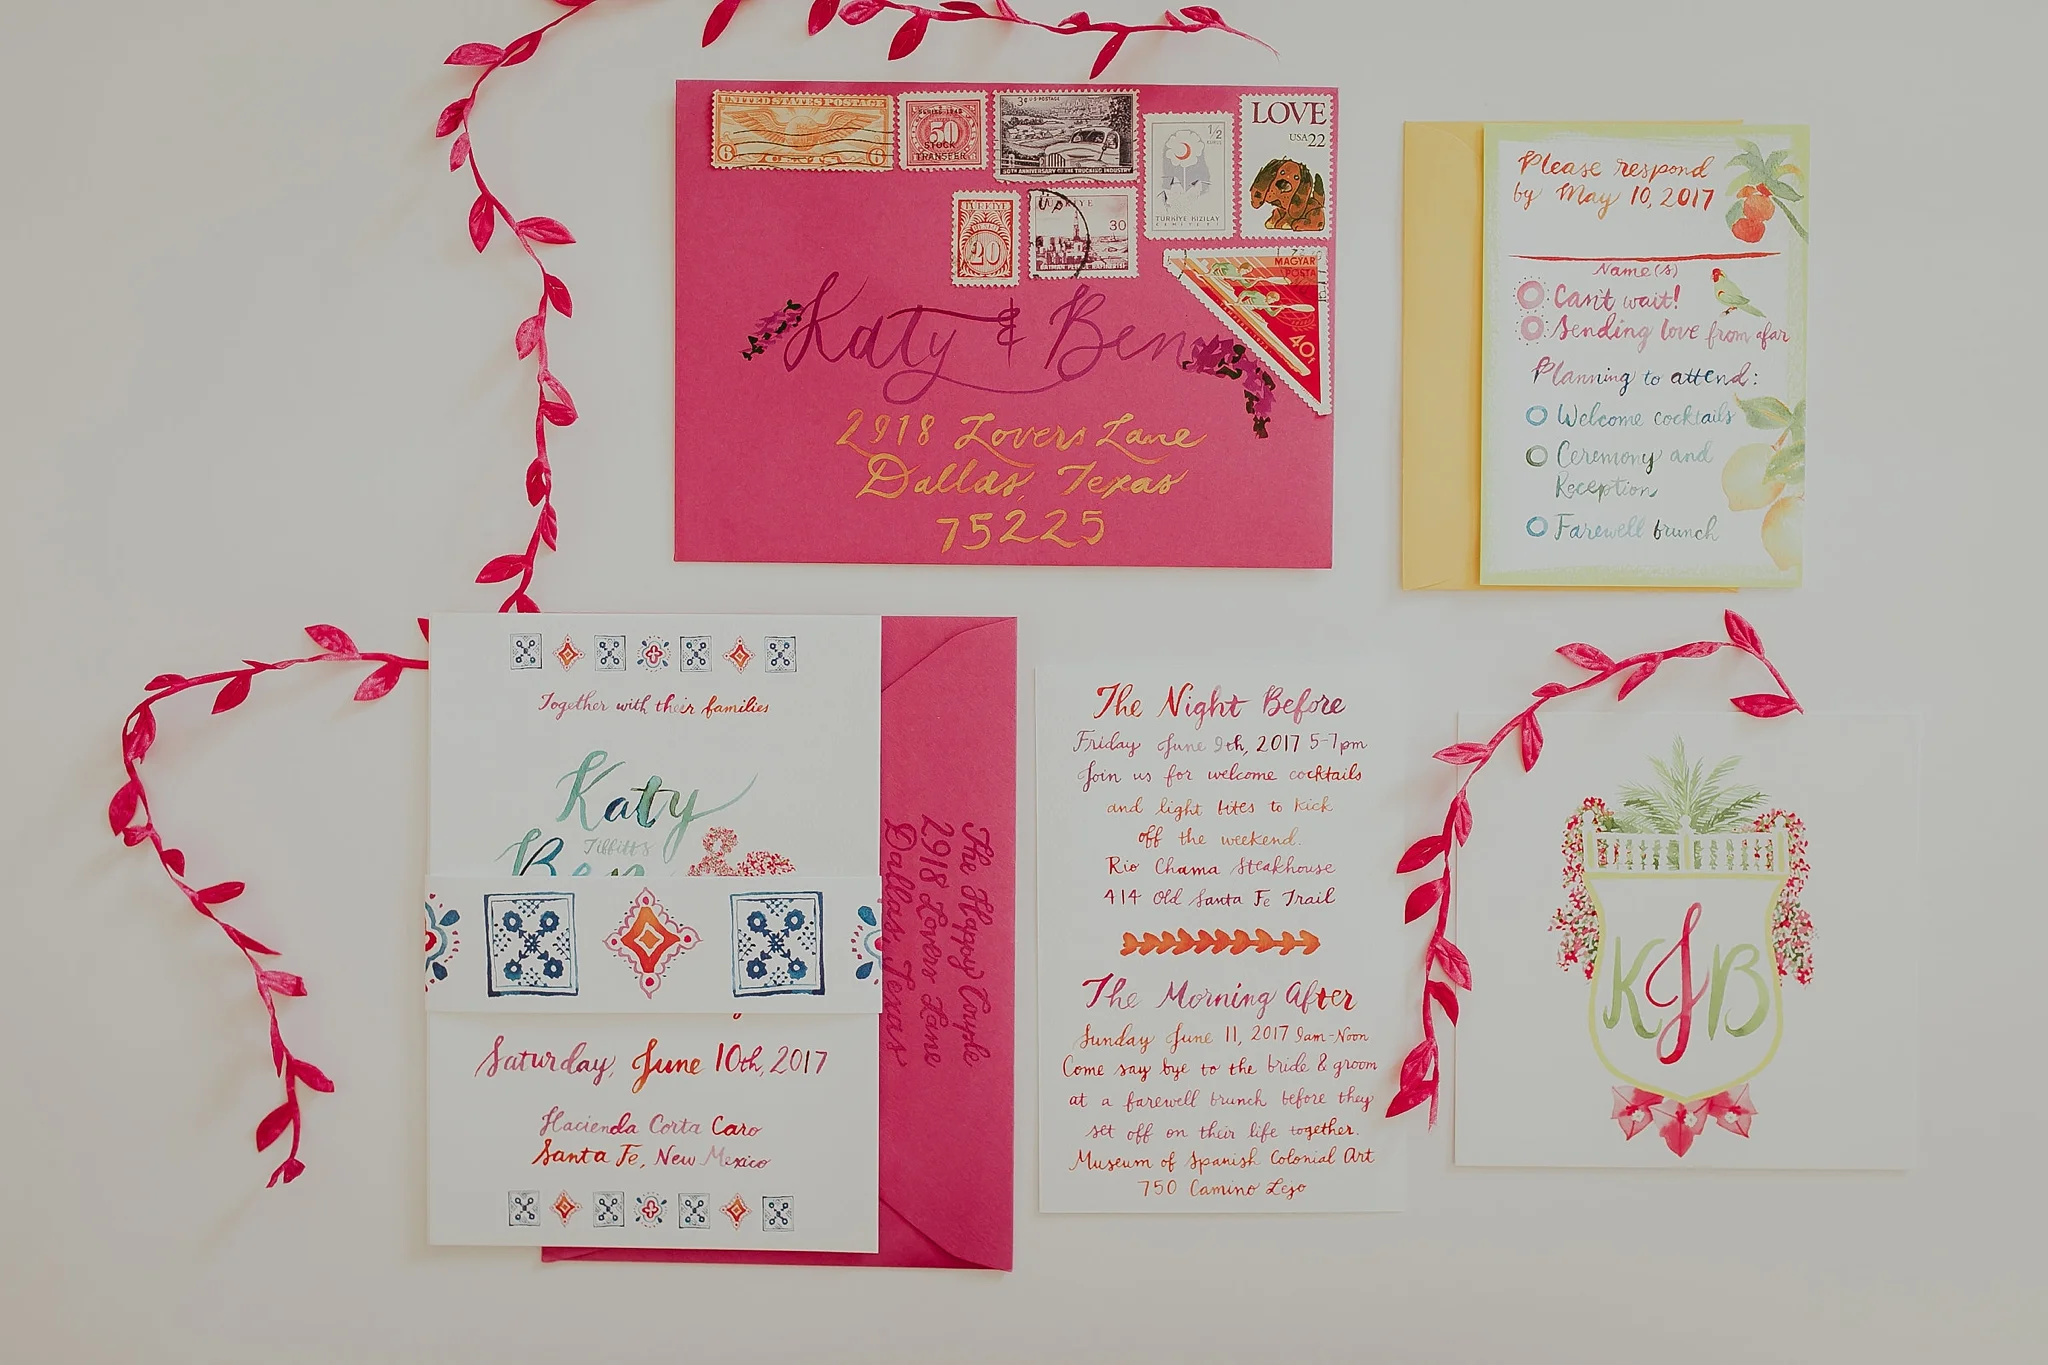 UNITED STATES POSTAGE
6 6
50
STOCK
TRANSFER
3¢ U.S. POSTAGE
50TH ANNIVERSARY OF THE TRUCKING INDUSTRY
1/2
TÜRKİYE KIZILAY
CEMİYETİ
LOVE
USA 22
TÜRKİYE
20
30
MAGYAR
POSTA
40f
Katy & Ben
2918 Lovers Lane
Dallas, Texas
75225
Please respond
by May 10, 2017
Name(s)
Can't wait!
Sending love from afar
Planning to attend:
Welcome cocktails
Ceremony and
Reception
Farewell brunch
Together with their families
Katy
Tibbitts
Ben
Saturday, June 10th, 2017
Hacienda Corta Caro
Santa Fe, New Mexico
The Happy Couple
2918 Lovers Lane
Dallas, Texas
The Night Before
Friday June 9th, 2017 5-7pm
Join us for welcome cocktails
and light bites to kick
off the weekend.
Rio Chama Steakhouse
414 Old Santa Fe Trail
The Morning After
Sunday June 11, 2017 9am-Noon
Come say bye to the bride & groom
at a farewell brunch before they
set off on their life together.
Museum of Spanish Colonial Art
750 Camino Lejo
KJB